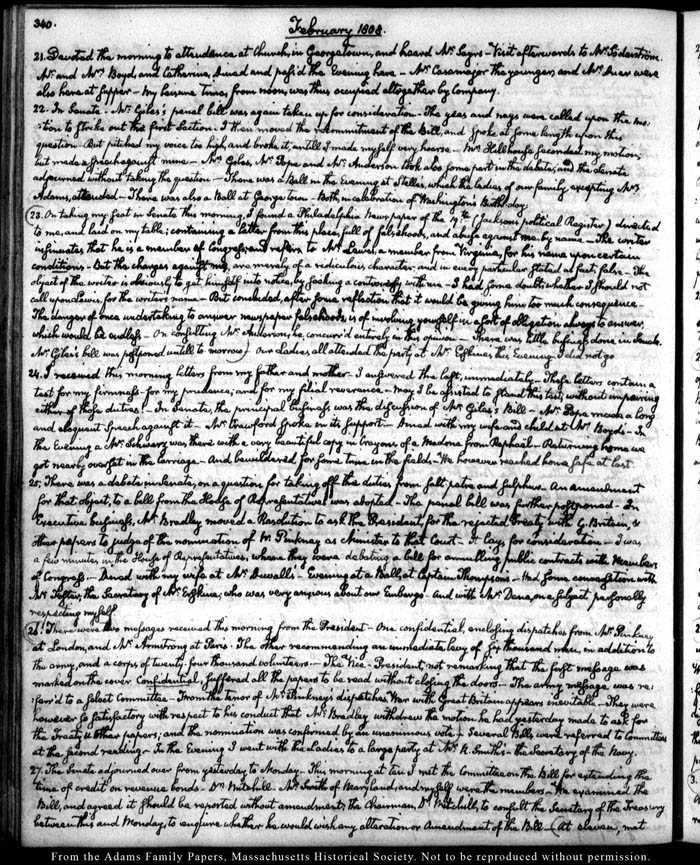 340.
February 1808.
21. Devoted the morning to attendance at Church, in Georgetown, and heard Mr. Sayrs — Visit afterwards to Mr. Söderström.
Mr. and Mrs. Boyd, and Catherine, dined and pass'd the Evening here — Mr. Casamajor the younger, and Mr. were
also here at supper — My leisure time, from noon, was thus occupied altogether by Company.
22. In Senate — Mr. Giles's penal bill was again taken up for consideration — The yeas and nays were called upon the mo-
-tion to strike out the first Section. I then moved the recommitment of the Bill, and spoke at some length upon this
question — But pitched my voice too high, and broke it, untill I made myself very hoarse — Mr. Hillhouse seconded my motion,
but made a speech against mine — Mr. Giles, Mr. Pope and Mr. Anderson took also some part in the debate; and the Senate
adjourned without taking the question — There was a Ball in the Evening at Stelle's, which the ladies of our family, excepting Mrs.
Adams, attended — There was also a Ball at Georgetown — Both in celebration of Washington's Birth day.
23. On taking my seat in Senate this morning, I found a Philadelphia Newspaper of the (Jackson's political Register) directed
to me, and laid on my table; containing a letter from this place, full of falsehoods, and abuse against me by name — The writer
insinuates that he is a member of Congress; and refers to Mr. Lewis, a member from Virginia, for his name upon certain
conditions — But the charges against me, are merely of a ridiculous character, and in every particular stated as fact, false — The
object of the writer is obviously to get himself into notice, by seeking a controversy with me — I had some doubt whether I should not
call upon Lewis, for the writer's name — But concluded, after some reflection that it would be giving him too much consequence —
The danger of once undertaking to answer newspaper falsehoods is of involving yourself in a sort of obligation always to answer,
which would be endless — On consulting Mr. Anderson, he concurr'd entirely in this opinion — There was little business done in Senate.
Mr. Giles's bill was postponed untill to morrow) Our Ladies all attended the party at Mr. Erskine's, this Evening. I did not go.
24. I received this morning letters from my father and mother — I answered the last, immediately — These letters contain a
test for my firmness, for my prudence, and for my filial reverence — May I be assisted to stand this test, without impairing
either of those duties! — In Senate, the principal business was the discussion of Mr. Giles's Bill — Mr. Pope made a long
and eloquent Speech against it — Mr. Crawford spoke in its support — Dined with my wife and child at Mr. Boyd's — In
the Evening a Mr. Schwarz was there with a very beautiful copy in crayons of a Madona from Raphael — Returning home we
got nearly overset in the Carriage — And bewildered for some time in the fields — We however reached home safe at last.
25. There was a debate in Senate, on a question for taking off the duties from salt petre, and sulphur — An amendment
for that object, to a bill from the House of Representatives was adopted — The penal bill was further postponed — In
Executive business, Mr. Bradley moved a Resolution to ask the President, for the rejected treaty with G. Britain, &
other papers to judge of the nomination of W. Pinkney as Minister to that Court — It lays for consideration — I was
a few minutes in the House of Representatives, where they were debating a bill for annulling public contracts with Members
of Congress — Dined with my wife at Mr. Duvall's — Evening at a Ball, at Captain Thompson's — Had some conversation with
Mr. the Secretary of Mr. Erskine, who was very anxious about our Embargo — And with Mr. Dana, on a subject personally
respecting myself.
26. There were two messages received this morning from the President — One confidential, enclosing dispatches from Mr. Pinkney
at London, and Mr. Armstrong at Paris — The other recommending an immediate levy of six thousand men, in addition to
the army, and a corps of twenty-four thousand volunteers — The Vice-President, not remarking that the first message was
marked on the cover Confidential, suffered all the papers to be read without closing the doors — The army message was re-
-ferr'd to a select Committee — From the tenor of Mr. Pinkney's dispatches War with Great Britain appears inevitable — They were
however so satisfactory with respect to his conduct that Mr. Bradley withdrew the motion he had yesterday made to ask for
the treaty & other papers; and the nomination was confirmed by an unanimous vote — Several Bills were referred to Committees
at the second reading — In the Evening I went with the Ladies to a large party at Mr. R. Smith's — the Secretary of the Navy.
27. The Senate adjourned over from yesterday to Monday — This morning at ten I met the Committee on the Bill for extending the
time of credit on revenue bonds — Dr. Mitchill — Mr. Smith of Maryland, and myself were the members — We examined the
Bill, and agreed it should be reported without amendment; the Chairman, Dr. Mitchill, to consult the Secretary of the Treasury
between this and Monday, to enquire whether he would wish any alteration or Amendment of the Bill — (At eleven, met
From the Adams Family Papers, Massachusetts Historical Society. Not to be reproduced without permission.